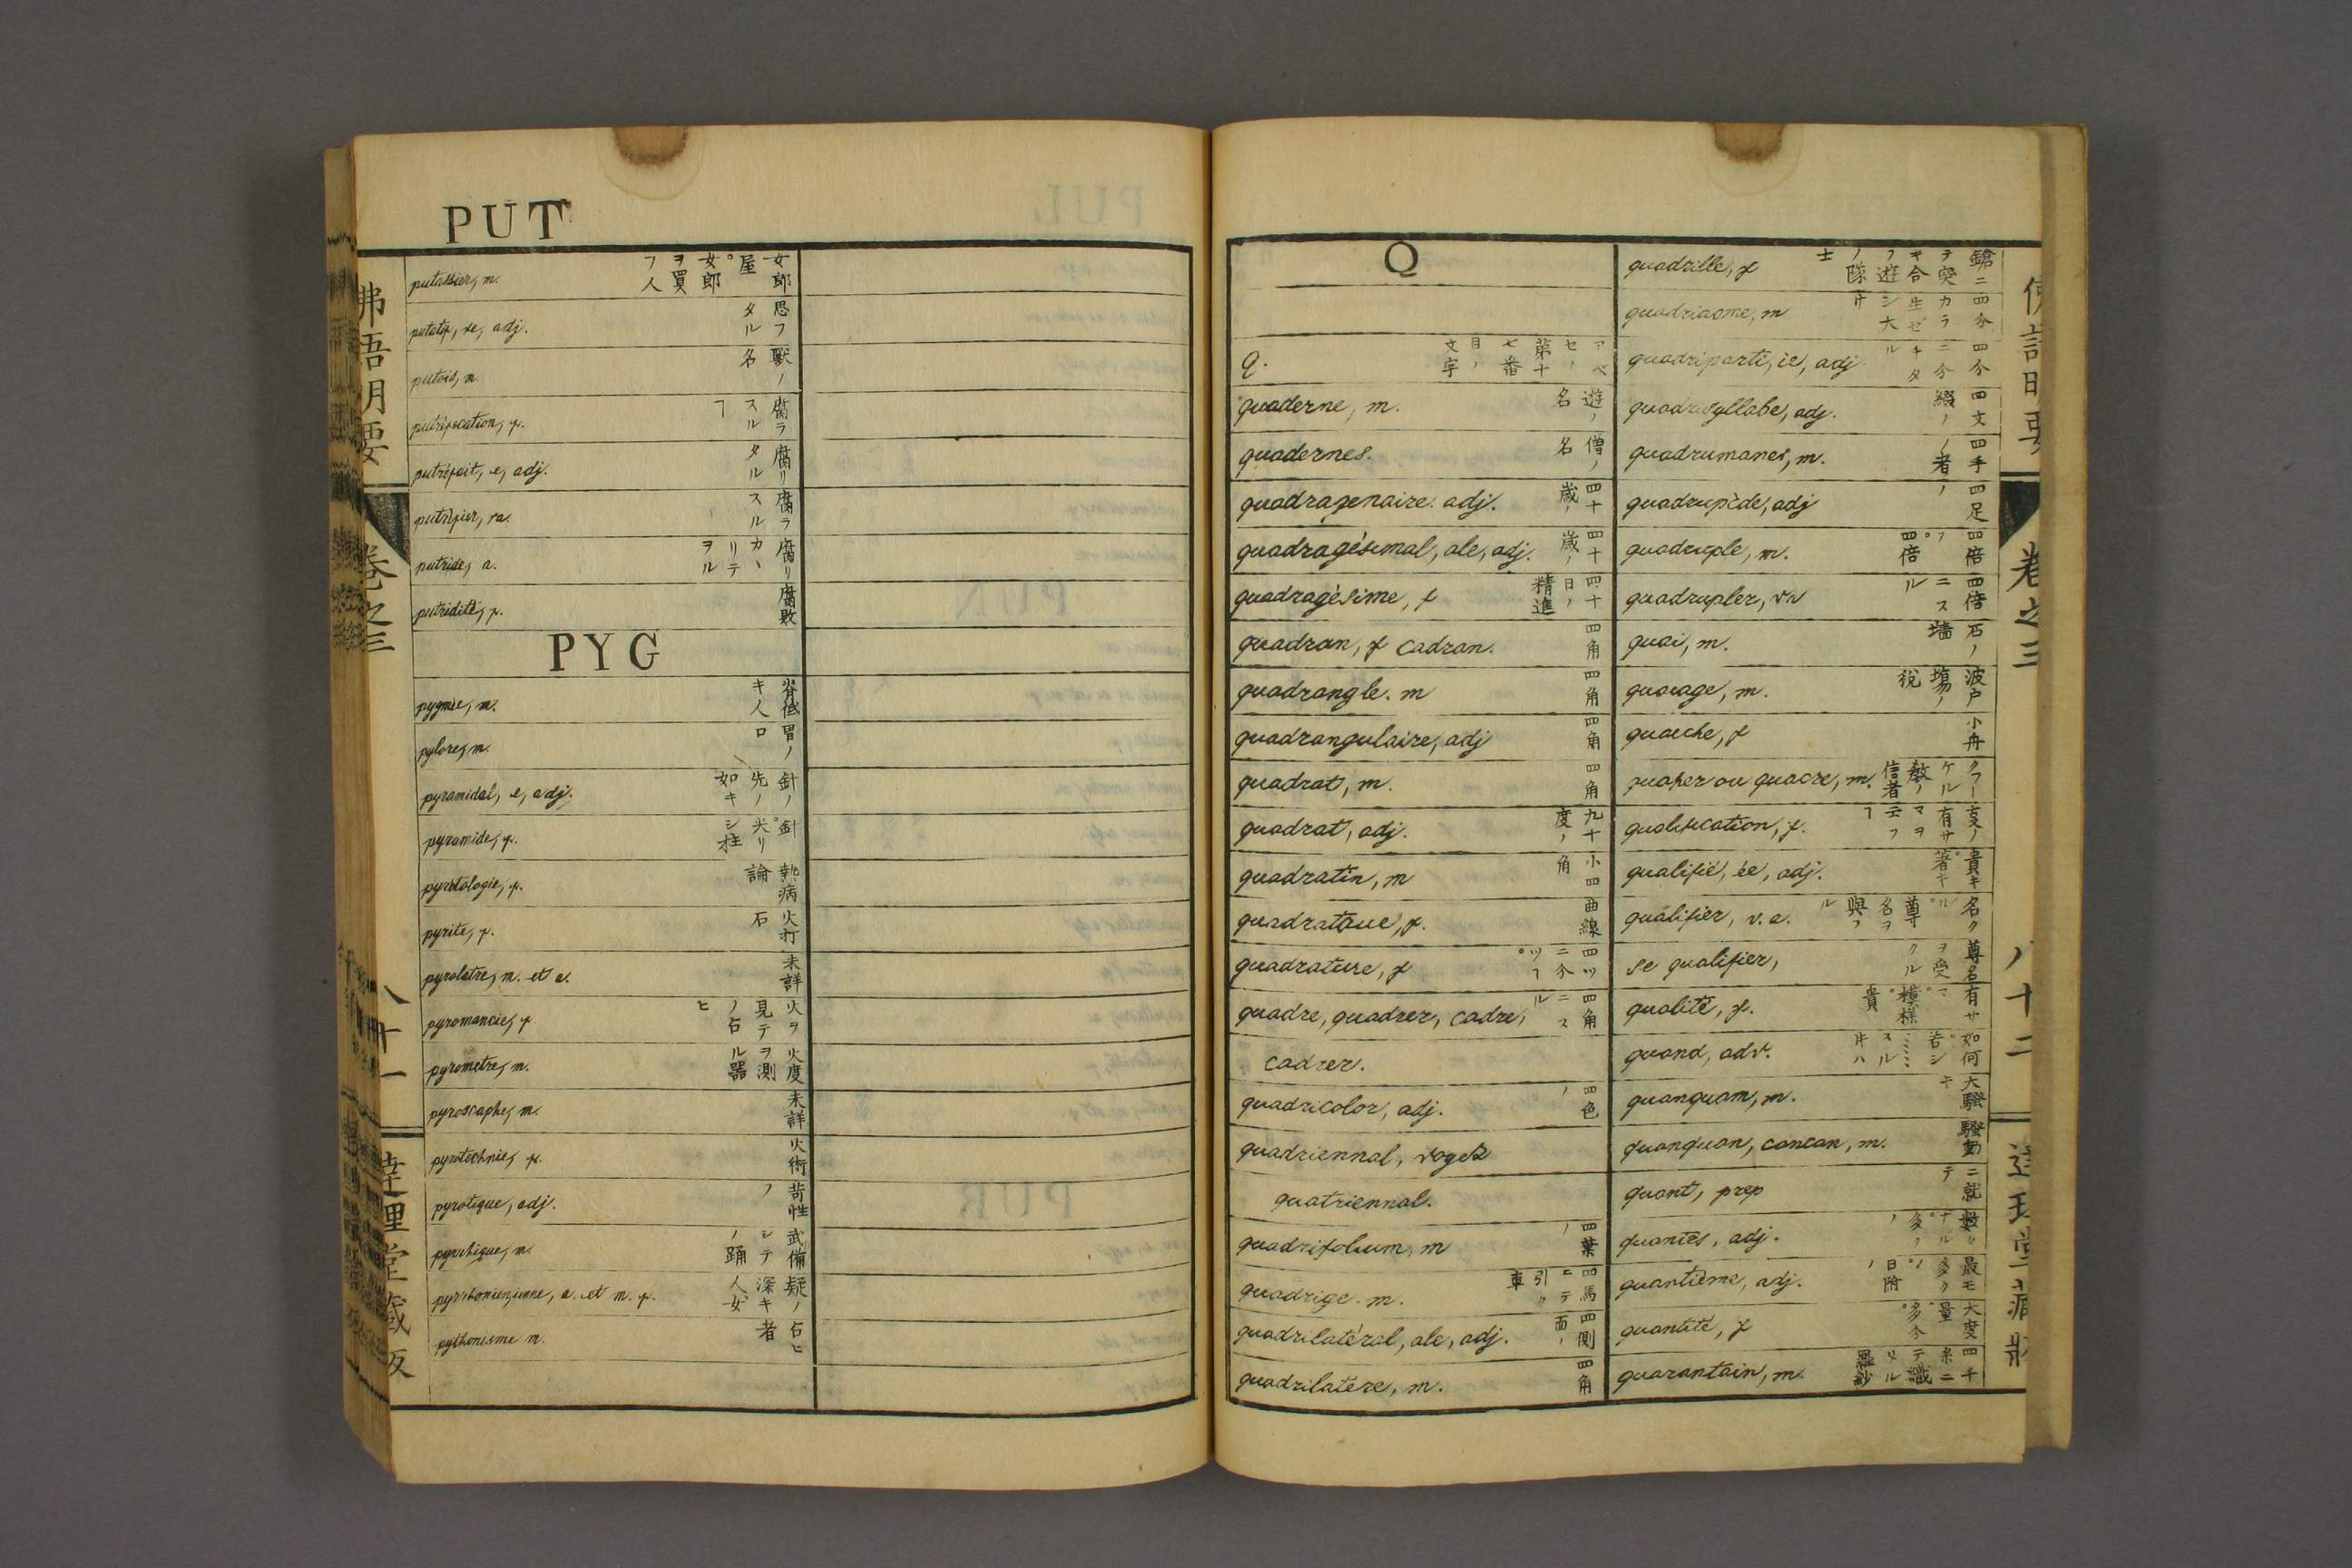 PUT
putassier, m. 女郎屋。女郎ヲ買フ人
putatif, ve, adj. 思フタル
putois, m. 獣ノ名
putréfaction, f. 腐ラスルヿ
putréfait, e, adj. 腐リタル
putréfier, va. 腐ラスル
putride, a. 腐リカヽリテヲル
putridité, f. 腐敗
PYG
pygmée, m. 脊低キ人
pylore, m. 胃ノ口
pyramidal, e, adj. 針ノ先ノ如キ
pyramide, f. 針。尖リシ柱
pyretologie, f. 熱病論
pyrite, f. 火打石
pyrolatre, m. et a. 未詳
pyromancie, f. 火ヲ見テノ占ヒ
pyrometre, m. 火度ヲ測ル器
pyroscaphe, m. 未詳
pyrotechnie, f. 火術
pyrotique, adj. 苛性ノ
pyrrhique, m. 武備シテノ踊
pyrrhonien, ienne, a. et m. f. 疑ノ深キ人
pythonisme m. 占ヒ者
弗語明要
卷之三
八十一
達理堂蔵版
Q
Q. アベセノ第十七番目ノ文字
quaderne, m. 遊ノ名
quadernes. 僧ノ名
quadragenaire. adj. 四十歳ノ
quadragésimal, ale, adj. 四十歳ノ
quadragésime, f 四十日ノ精進
quadran, f cadran. 四角
quadrangle. m 四角
quadrangulaire, adj 四角
quadrat, m. 四角
quadrat, adj. 九十度ノ
quadratin, m 小四角
quadratque, f. 曲線
quadrature, f 四ツニ分ツヿ。
quadre, quadrer, cadre, 四角ニスル
cadrer.
quadricolor, adj. 四色ノ
quadriennal, voyez
quatriennal.
quadrifolium, m 四葉ノ
quadrige. m. 四馬ニテ引ク車
quadrilatéral, ale, adj. 四側面ノ
quadrilatère, m. 四角
quadrille, f 鎗ニテ突キ合フ遊ノ隊士
quadriparti, ie, adj 四分ニ分チタル
quadrisyllabe, adj. 四文綴ノ
quadrumanes, m. 四手ノ者
quadrupède, adj 四足ノ
quadruple, m. 四倍ノ。四倍
quadrupler, va 四倍ニスル
quai, m. 石ノ墻
quaiage, m. 波戸場ノ税
quaiche, f 小舟
quaker ou quacre, m. クワーケル教ノ信者
qualification, f. 支ノ有サマヲ云フヿ
qualifié, ée, adj. 貴キ。著キ
qualifier, v. a. 名クル。尊名ヲ與フル
se qualifier, 尊名ヲ受クル
qualité, f. 有サマ。模様。貴
quand, adv. 如何。若シ
quanquam, m. 大騒キ
quanquan, cancan, m. 騒動
quant, prep ニ就テ
quantès, adj.
quantième, adj. 最モ多クノ。日附ノ
quantité, f 大度。量。多分。
quarantain, m. 四千糸ニテ織リル羅紗
卷之三
八十二